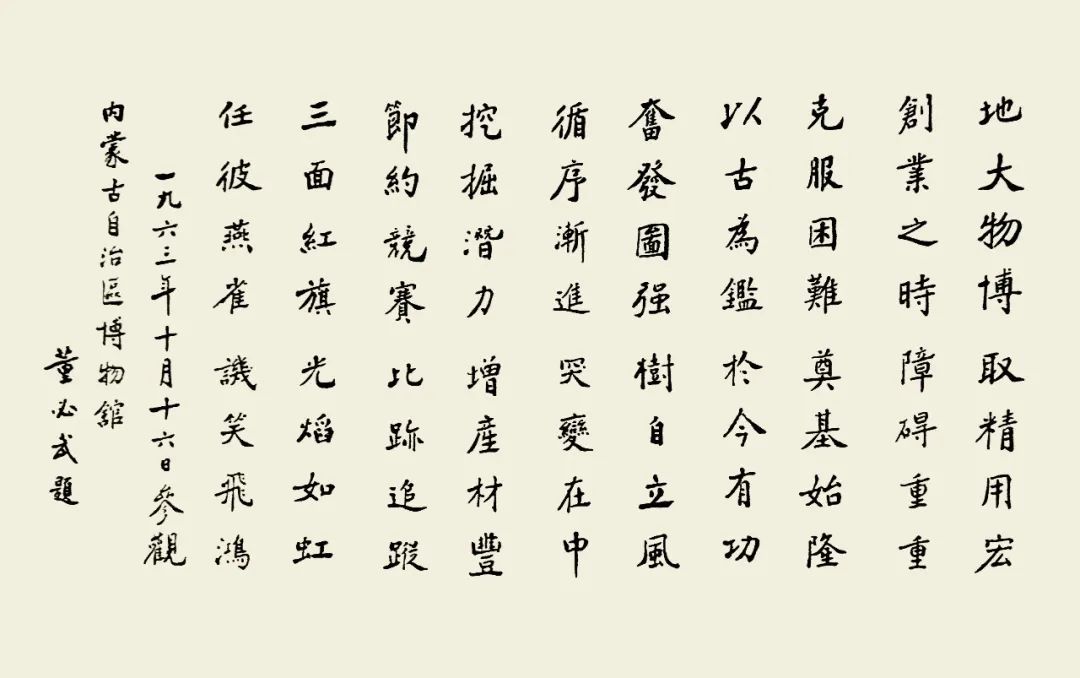 地大物博 取精用宏
創業之時 障碍重重
克服困難 奠基始隆
以古為鑑 於今有功
奮發圖强 樹自立風
循序漸進 突變在中
挖掘潛力 增産材豐
節約競賽 比跡追蹤
三面紅旗 光焰如虹
任彼燕雀 譏笑飛鴻
一九六三年十月十六日參觀
内蒙古自治區博物舘
董必武題